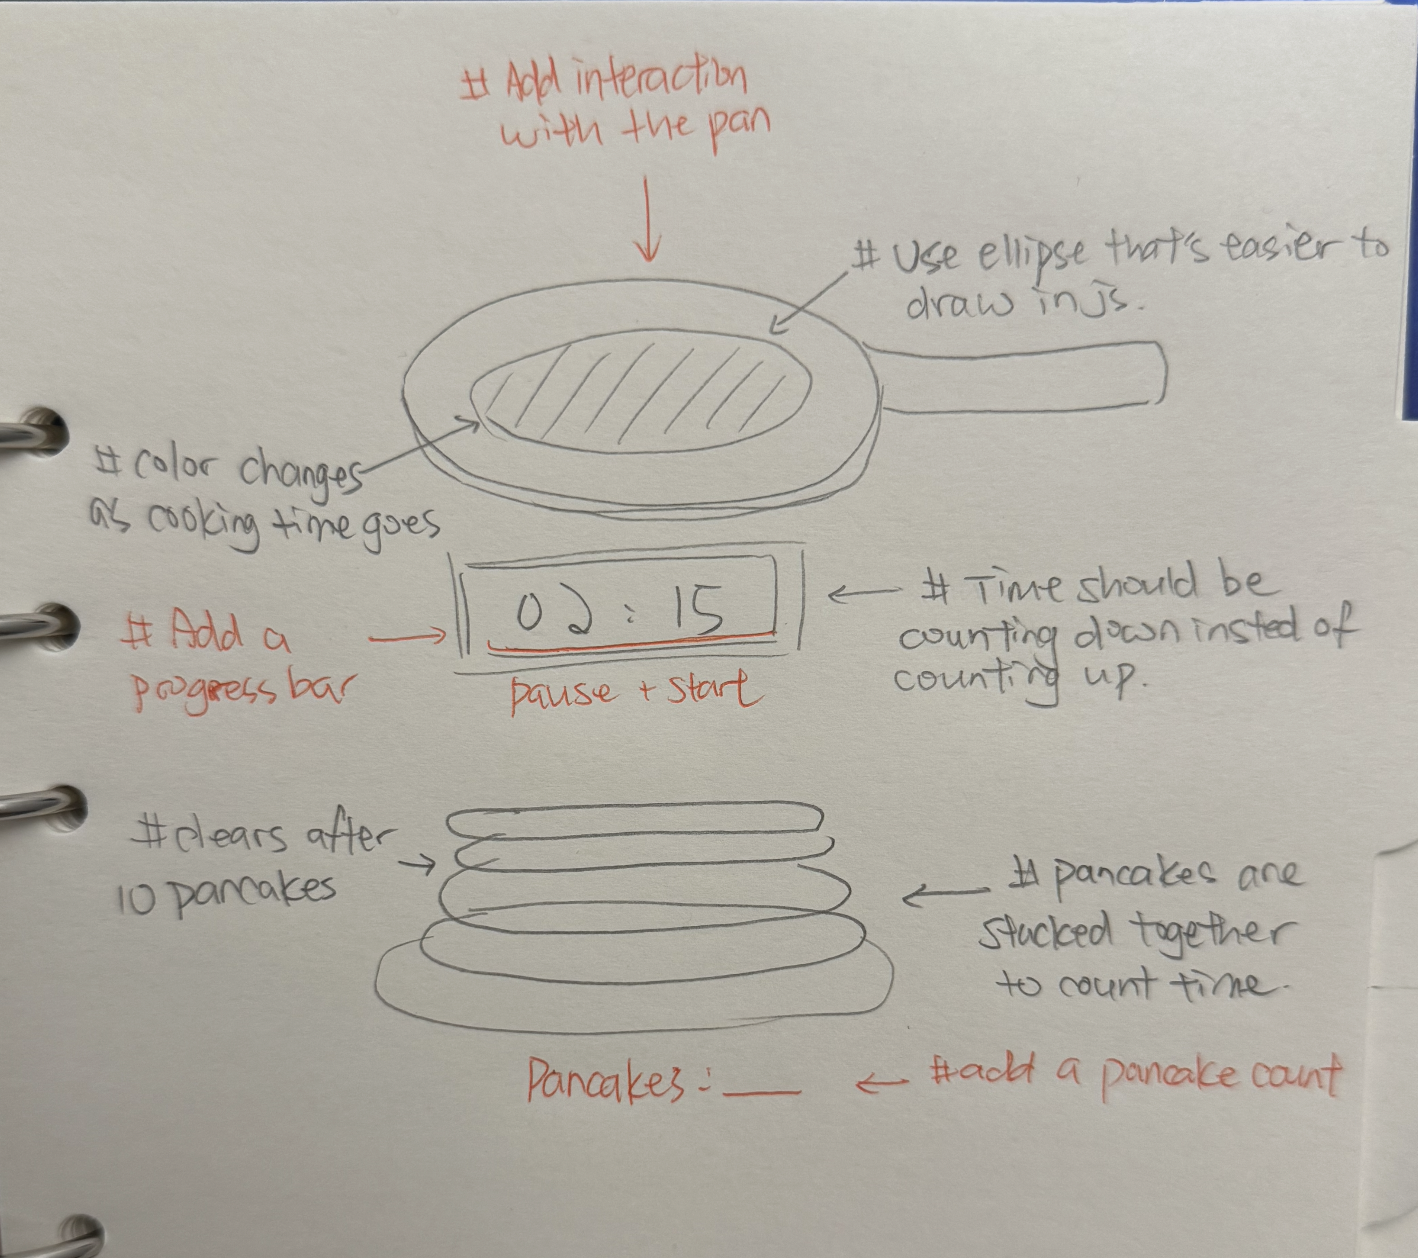 # Add interaction
with the pan
# Use ellipse that's easier to
draw in js.
# color changes
as cooking time goes
02:15
# Time should be
counting down insted of
counting up.
# Add a
progress bar
pause + start
# clears after
10 pancakes
# pancakes are
stacked together
to count time.
Pancakes: ___
# add a pancake count